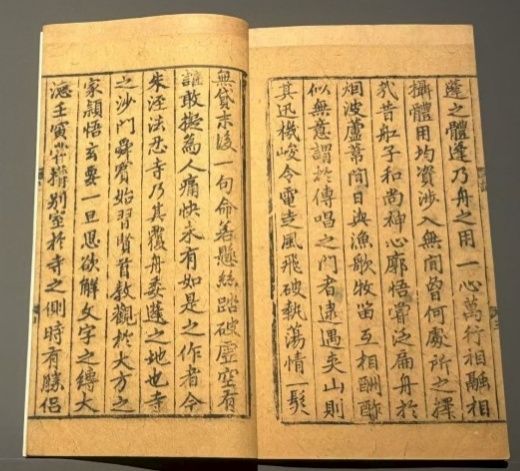 蓬之體逢乃舟之用一心萬行相融相
攝體用均資涉入無間曾何處所之擇
哉昔舡子和尚神心廓悟甞泛扁舟於
烟波蘆葦間日與漁歌牧笛互相酬酢
似無意謂於傳唱之門者逮遇夾山則
其迅機峻令電走風飛破執蕩情一髮
無貸末後一句命若懸絲踏破虛空有
誰敢擬為人痛快未有如是之作者今
朱涇法忍寺乃其覆舟委蓬之地也寺
之沙門賓始習賢首教觀於大方之
家頴悟玄要一旦思欲解文字之縛大
德壬寅甞搆別室於寺之側時有勝侶